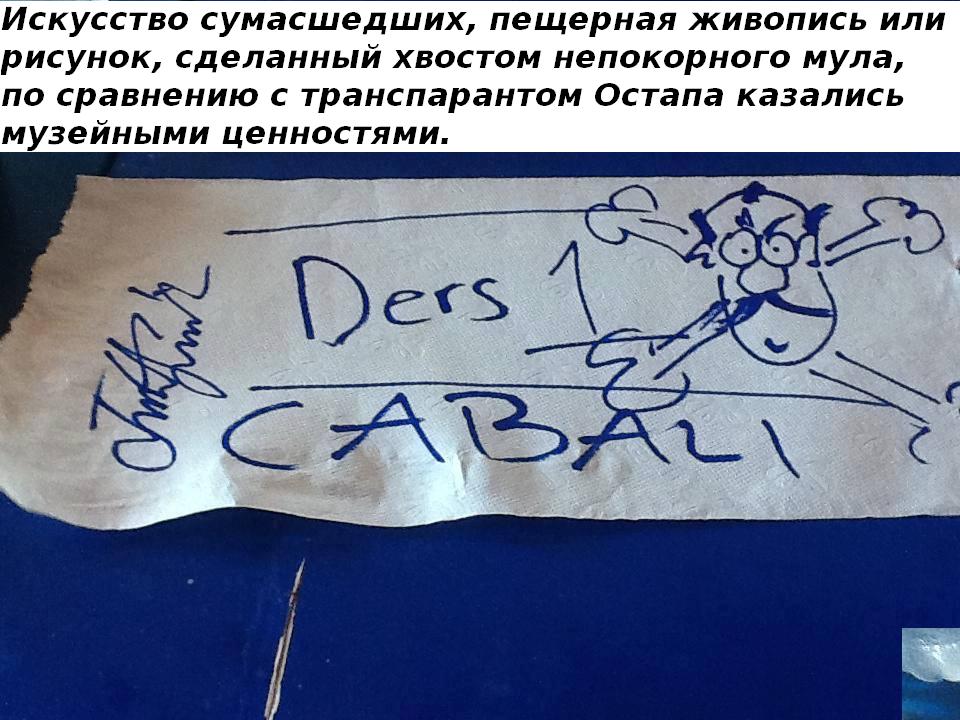 Искусство сумасшедших, пещерная живопись или
рисунок, сделанный хвостом непокорного мула,
по сравнению с транспарантом Остапа казались
музейными ценностями.
Ders 1